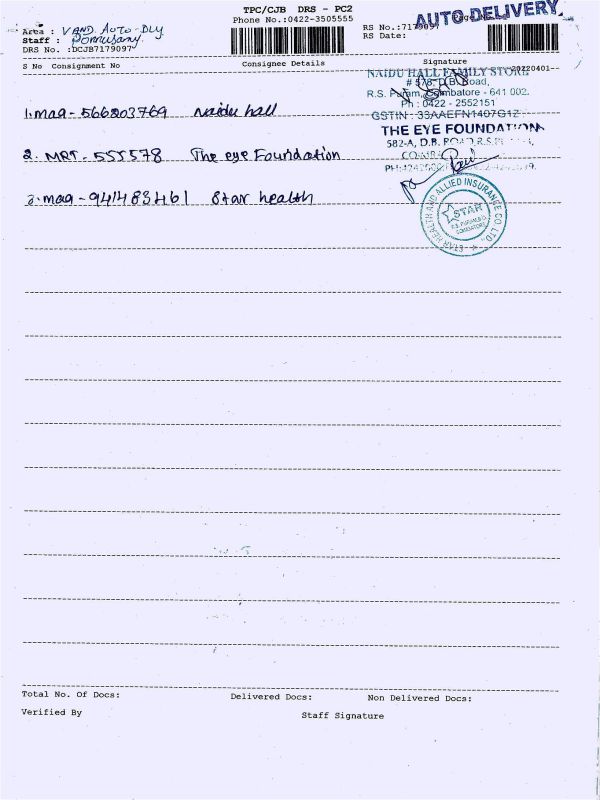 TPC/CJB DRS - PC2
Phone No.:0422-3505555
AUTO DELIVERY
Area : VAND Auto-Dly
Staff :
DRS No. :DCJB7179097
RS No.:7179097
RS Date:
20220401
S No Consignment No Consignee Details Signature
NAIDU HALL FAMILY STORE
# 578, D.B. Road,
R.S. Puram, Coimbatore - 641 002.
Ph : 0422 - 2552151
GSTIN : 33AAEFN1407G1Z
1. maa - 566203769 Naidu hall
THE EYE FOUNDATION
582-A, D.B. ROAD, R.S.
2. MRT - 555578 The eye Foundation
3. maa - 941483461 Star health
STAR HEALTH AND ALLIED INSURANCE CO. LTD.
STAR
R.S. PURAM B.O.
COIMBATORE
Total No. Of Docs: Delivered Docs: Non Delivered Docs:
Verified By Staff Signature